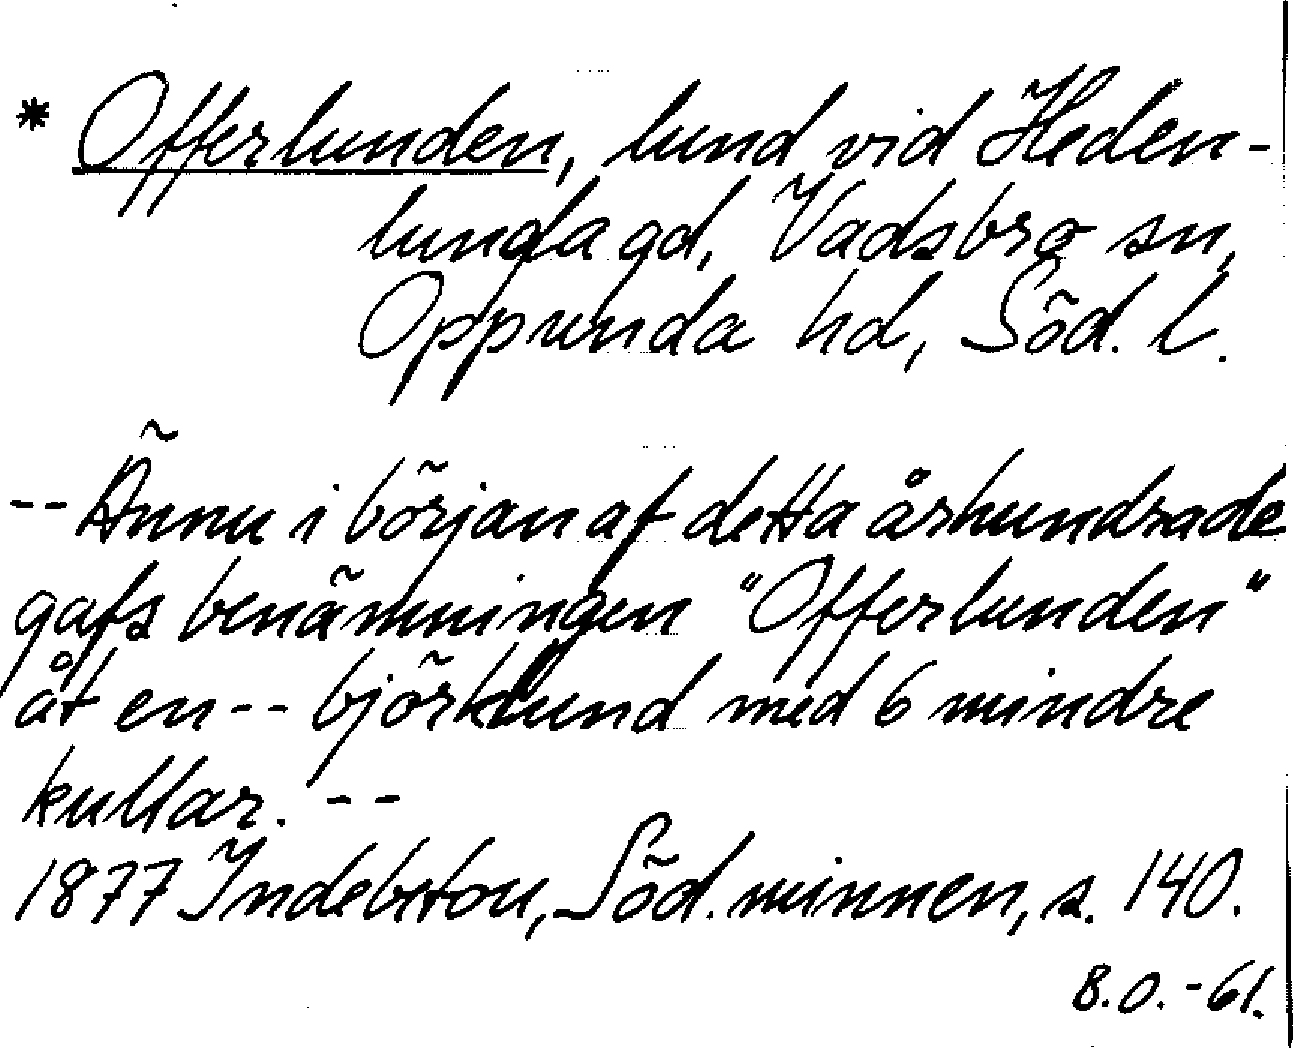 * Offerlunden, lund vid Heden-
lunda gd, Vadsbro sn,
Oppunda hd, Söd. l.
-- Ännu i början af detta århundrade
gafs benämningen "Offerlunden"
åt en -- björklund med 6 mindre
kullar. --
1877 Indebetou, Söd. minnen, s. 140.
B.O. -61.